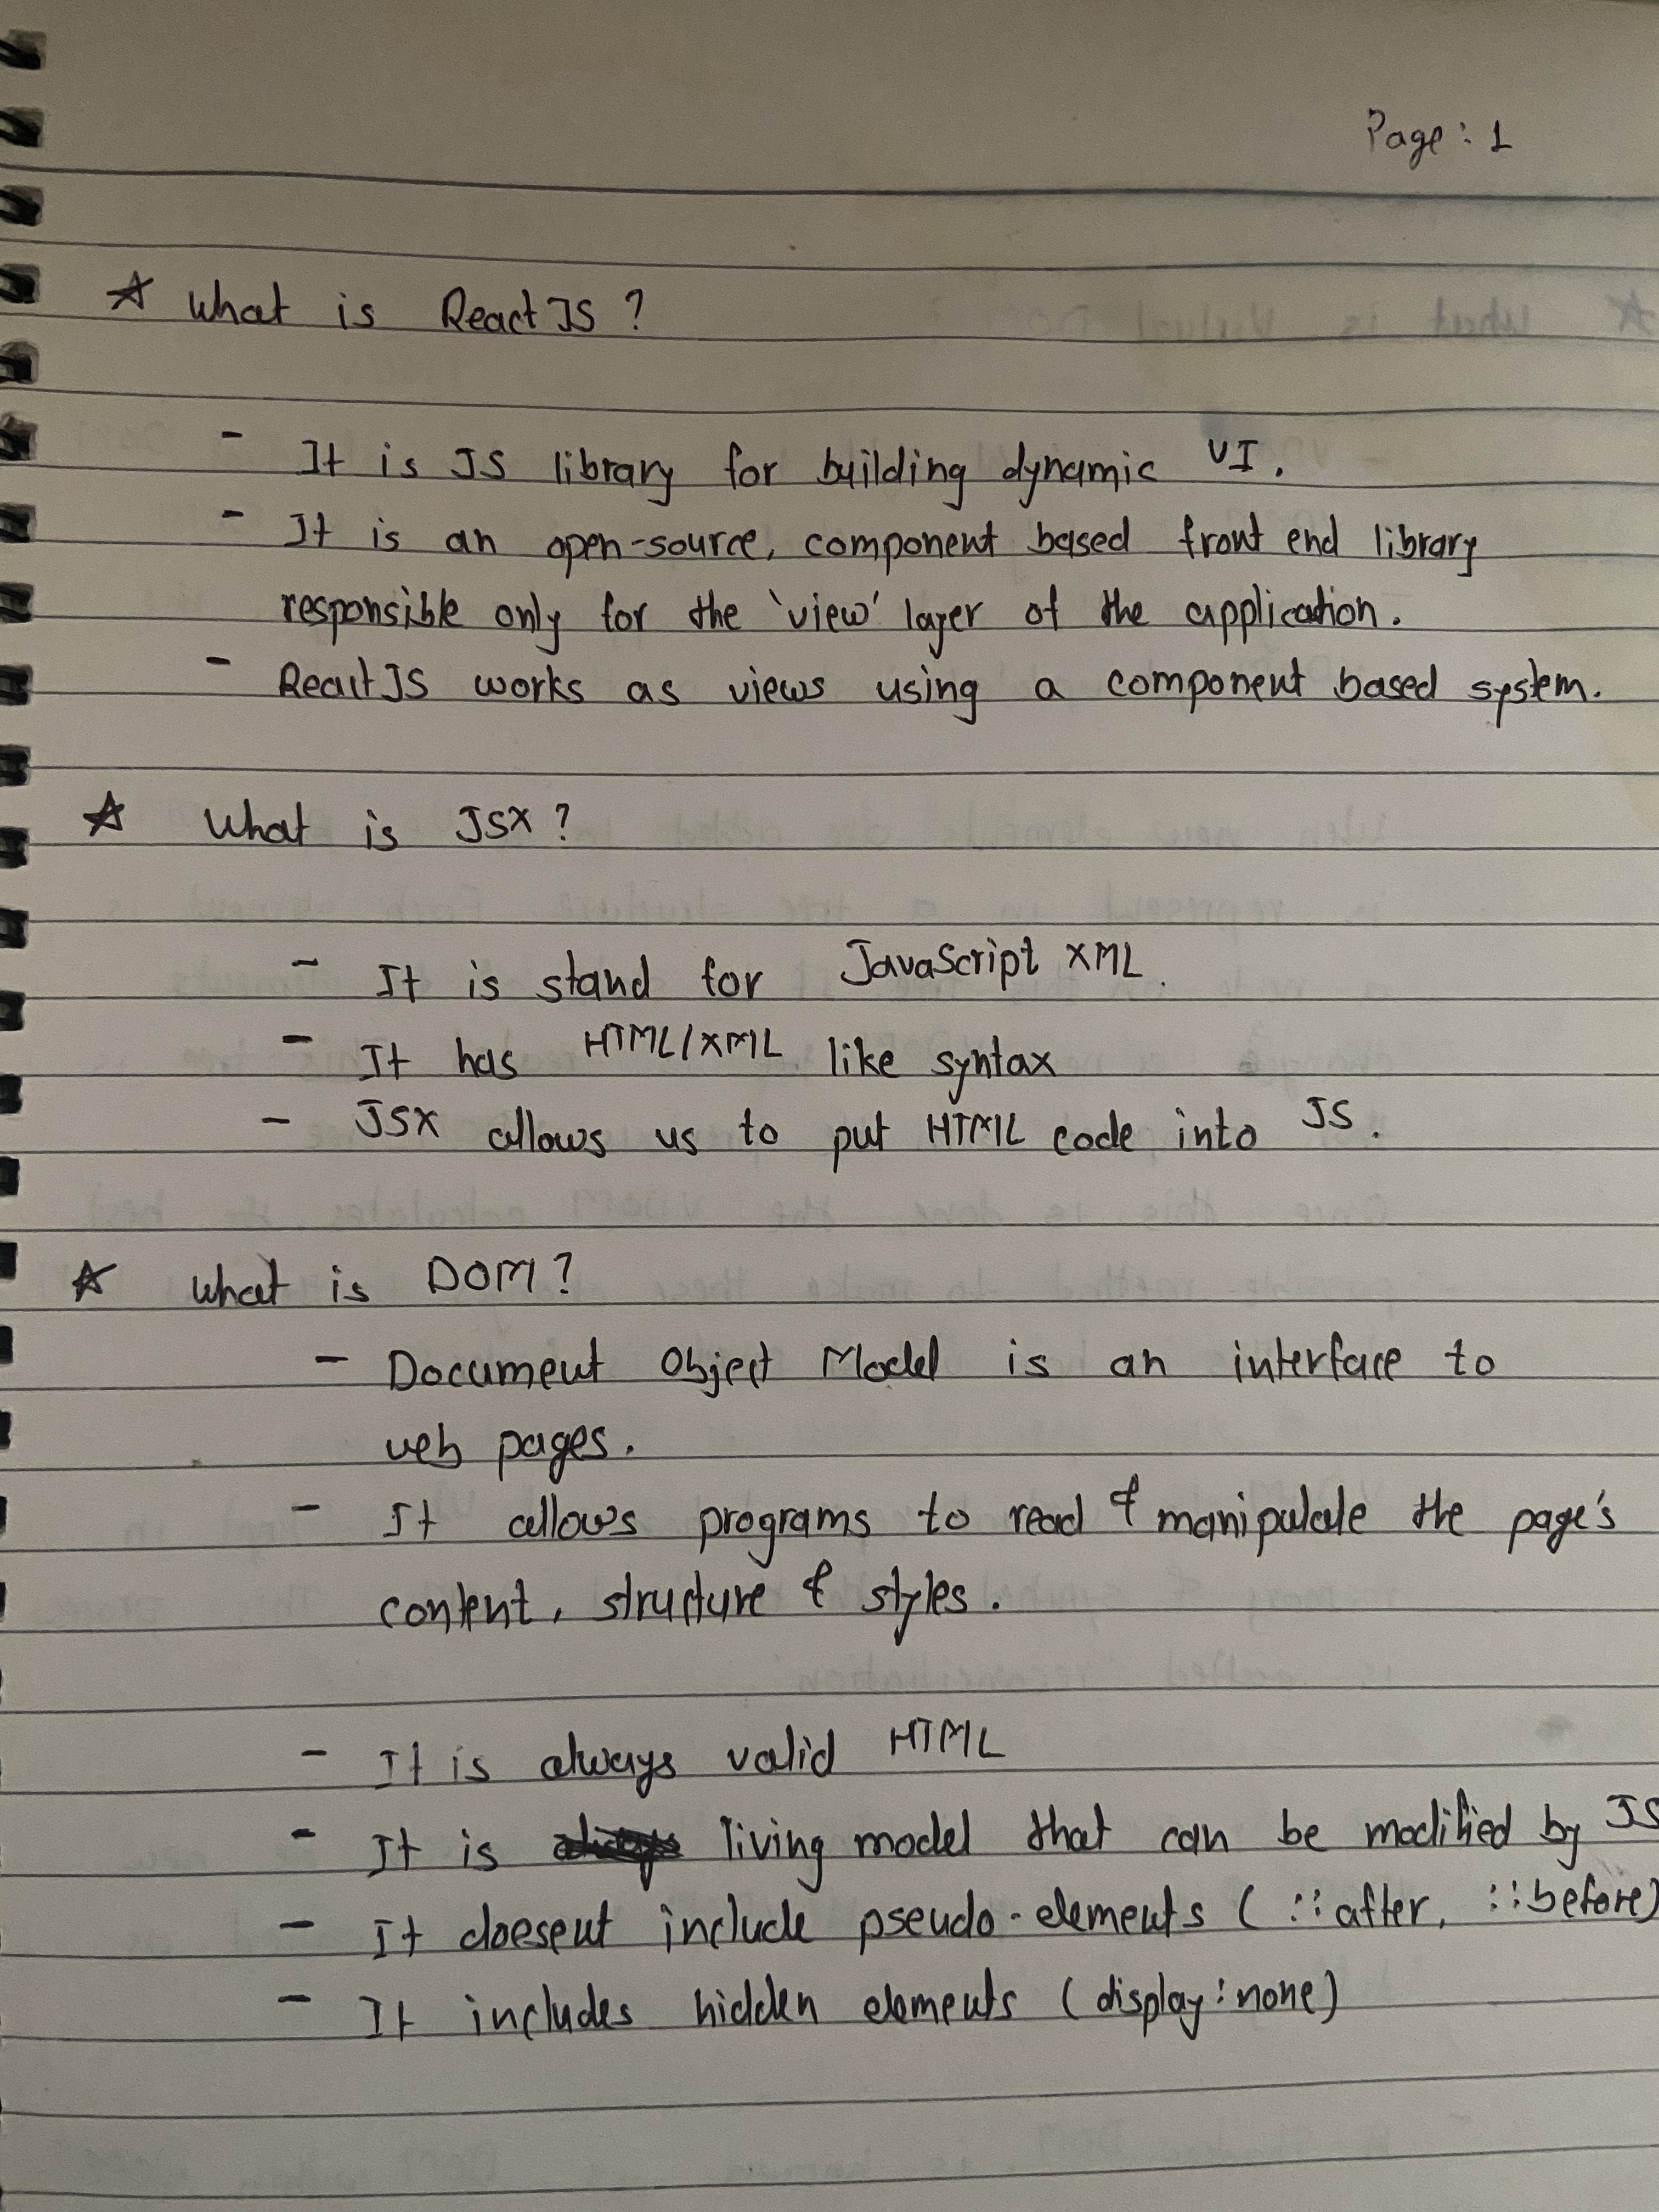 Page: 1
☆ What is ReactJS?
- It is JS library for building dynamic UI.
- It is an open-source, component based front end library
responsible only for the 'view' layer of the application.
- ReactJS works as views using a component based system.
☆ What is JSX?
- It is stand for JavaScript XML.
- It has HTML/XML like syntax
- JSX allows us to put HTML code into JS.
☆ What is DOM?
- Document Object Model is an interface to
web pages.
- It allows programs to read & manipulate the page's
content, structure & styles.
- It is always valid HTML
- It is living model that can be modified by JS
- It doesent include pseudo-elements (::after, ::before)
- It includes hidden elements (display:none)